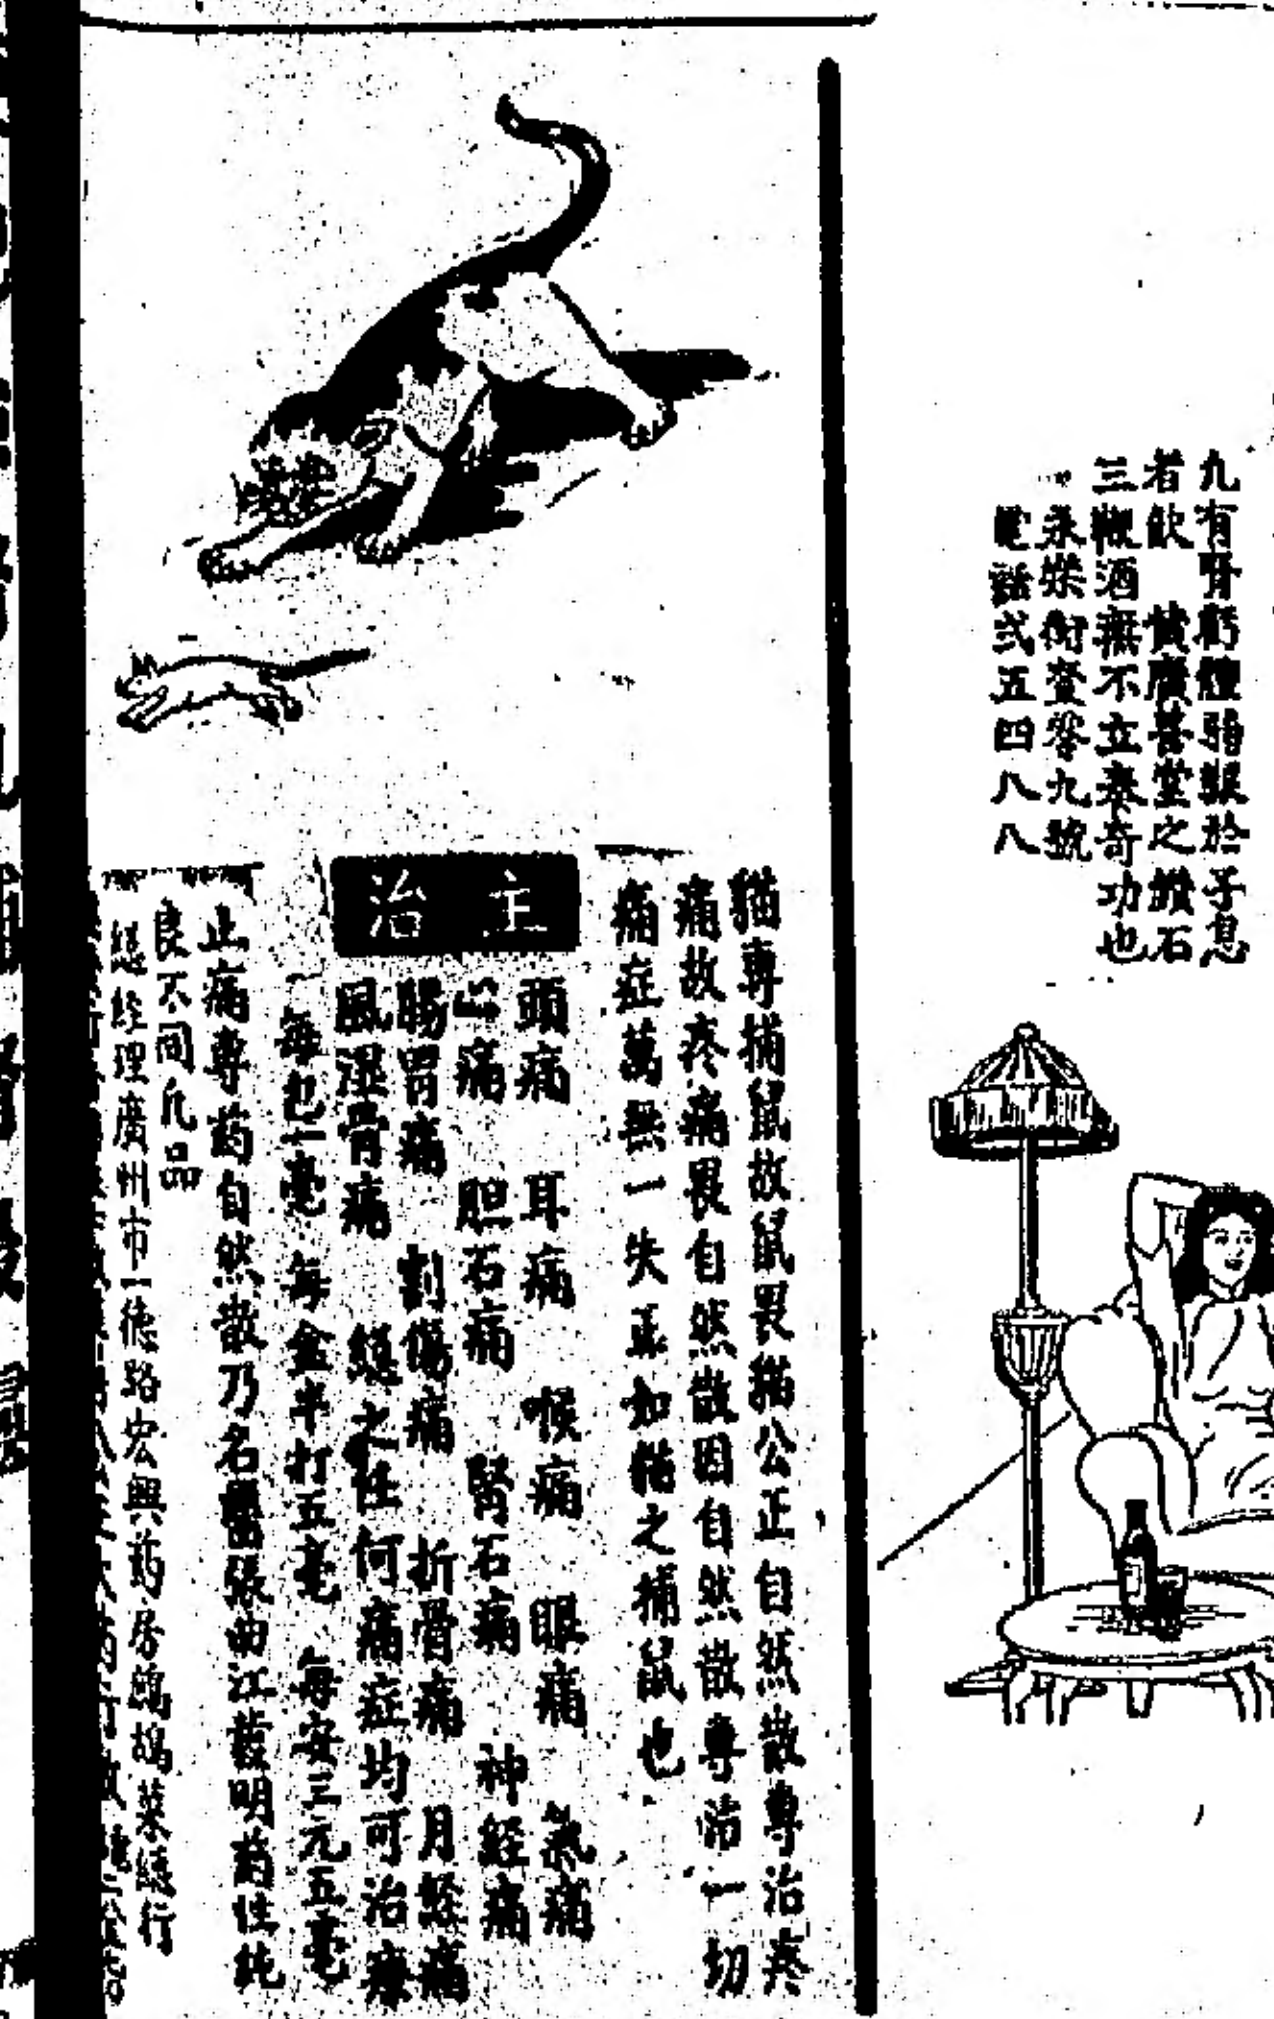 九有腎虧體弱艱於子息
者飲 黃廣善堂之鑽石
三鞭酒無不立奏奇功也
永樂街壹零九號
電話弍五四八八
貓專捕鼠故鼠畏貓公正自然散專治疼
痛故疼痛畏自然散因自然散專治一切
痛症萬無一失正如貓之捕鼠也
主治
頭痛 耳痛 喉痛 眼痛 氣痛
心痛 胆石痛 腎石痛 神經痛
腸胃痛 割傷痛 折骨痛 月經痛
風濕骨痛 總之任何痛症均可治療
每包一毫 每盒半打五毫 每安士元五毫
止痛專药自然散乃名醫張曲江發明药性純
良不同凡品
總經理廣州市一德路宏興药房